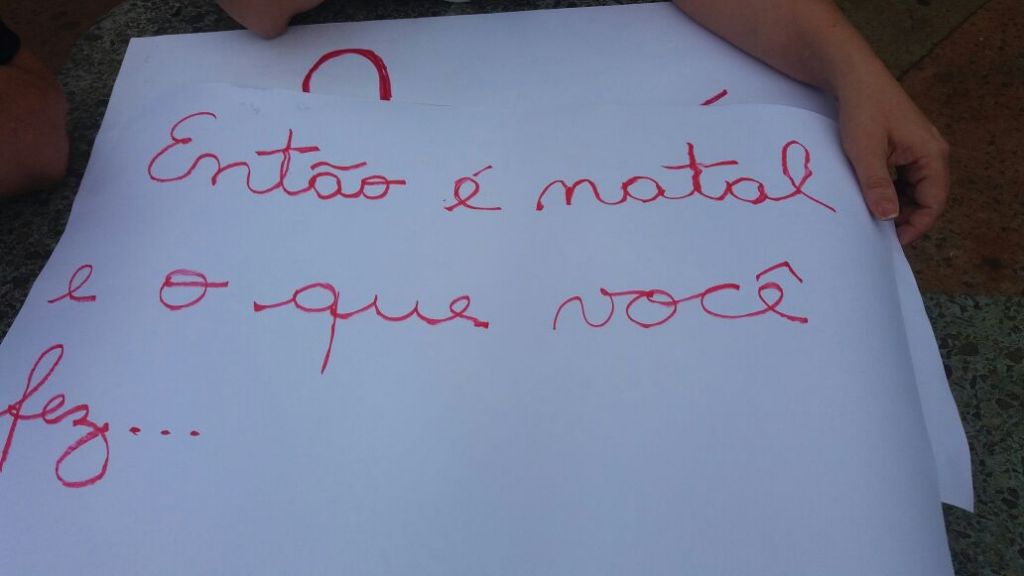 Então é natal
e o que você
fez...